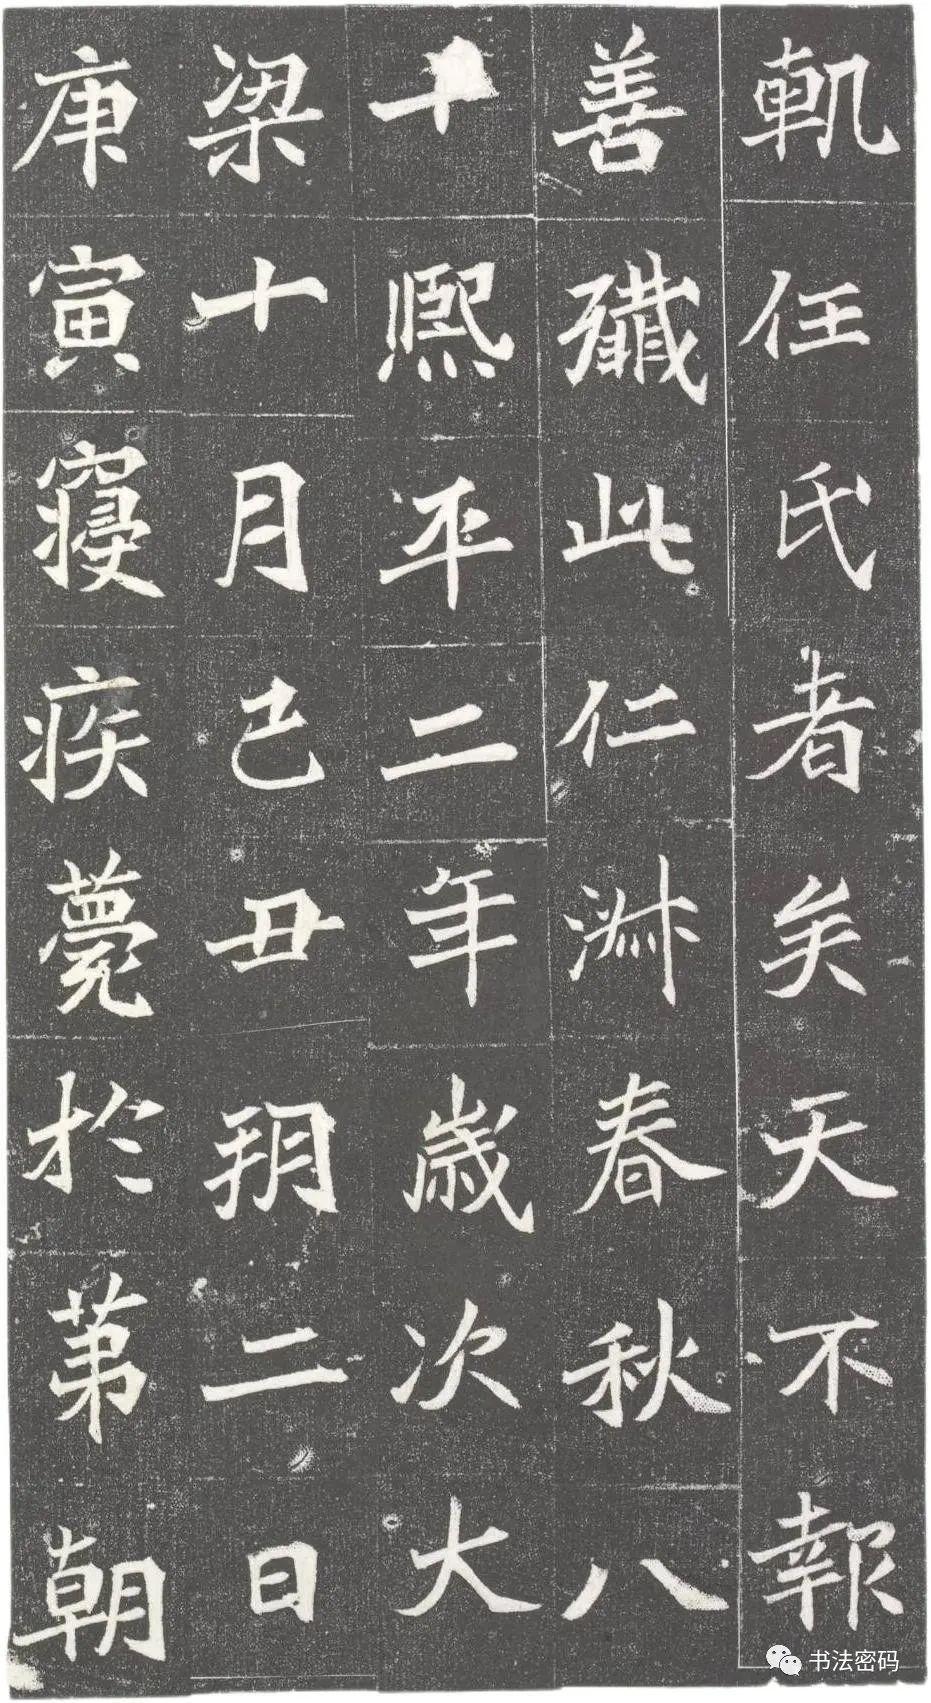 軌任氏者矣天不報
善殲此仁淋春秋八
十熈平二年歳次大
梁十月己丑玥二日
庚寅寑疾薨於苐朝
书法密码